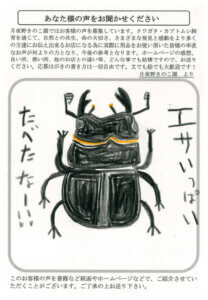 あなた様の声をお聞かせください
月夜野きのこ園ではお客様の声を募集しています。クワガタ・カブトムシ飼
育を通じて、自然との共生、命の大切さ、さまざまな発見と感動をより多く
の方達にお伝え出来るお店になる為に実際に用品をお使い頂いた皆様の率直
なお声が何よりの力となり、今後の参考となります。ホームページの感想、
良い所、悪い所、他のお店との違い等、どんな事でも結構ですので、お送り
ください。応募はがきの書き方は一切自由です。文でも絵でも大歓迎です！
月夜野きのこ園　より
エサいっぱい
たべたなー!!!
このお客様の声を書籍など紙面やホームページなどで、ご紹介させていた
だくことがございます。ご了承の上お送り下さい。